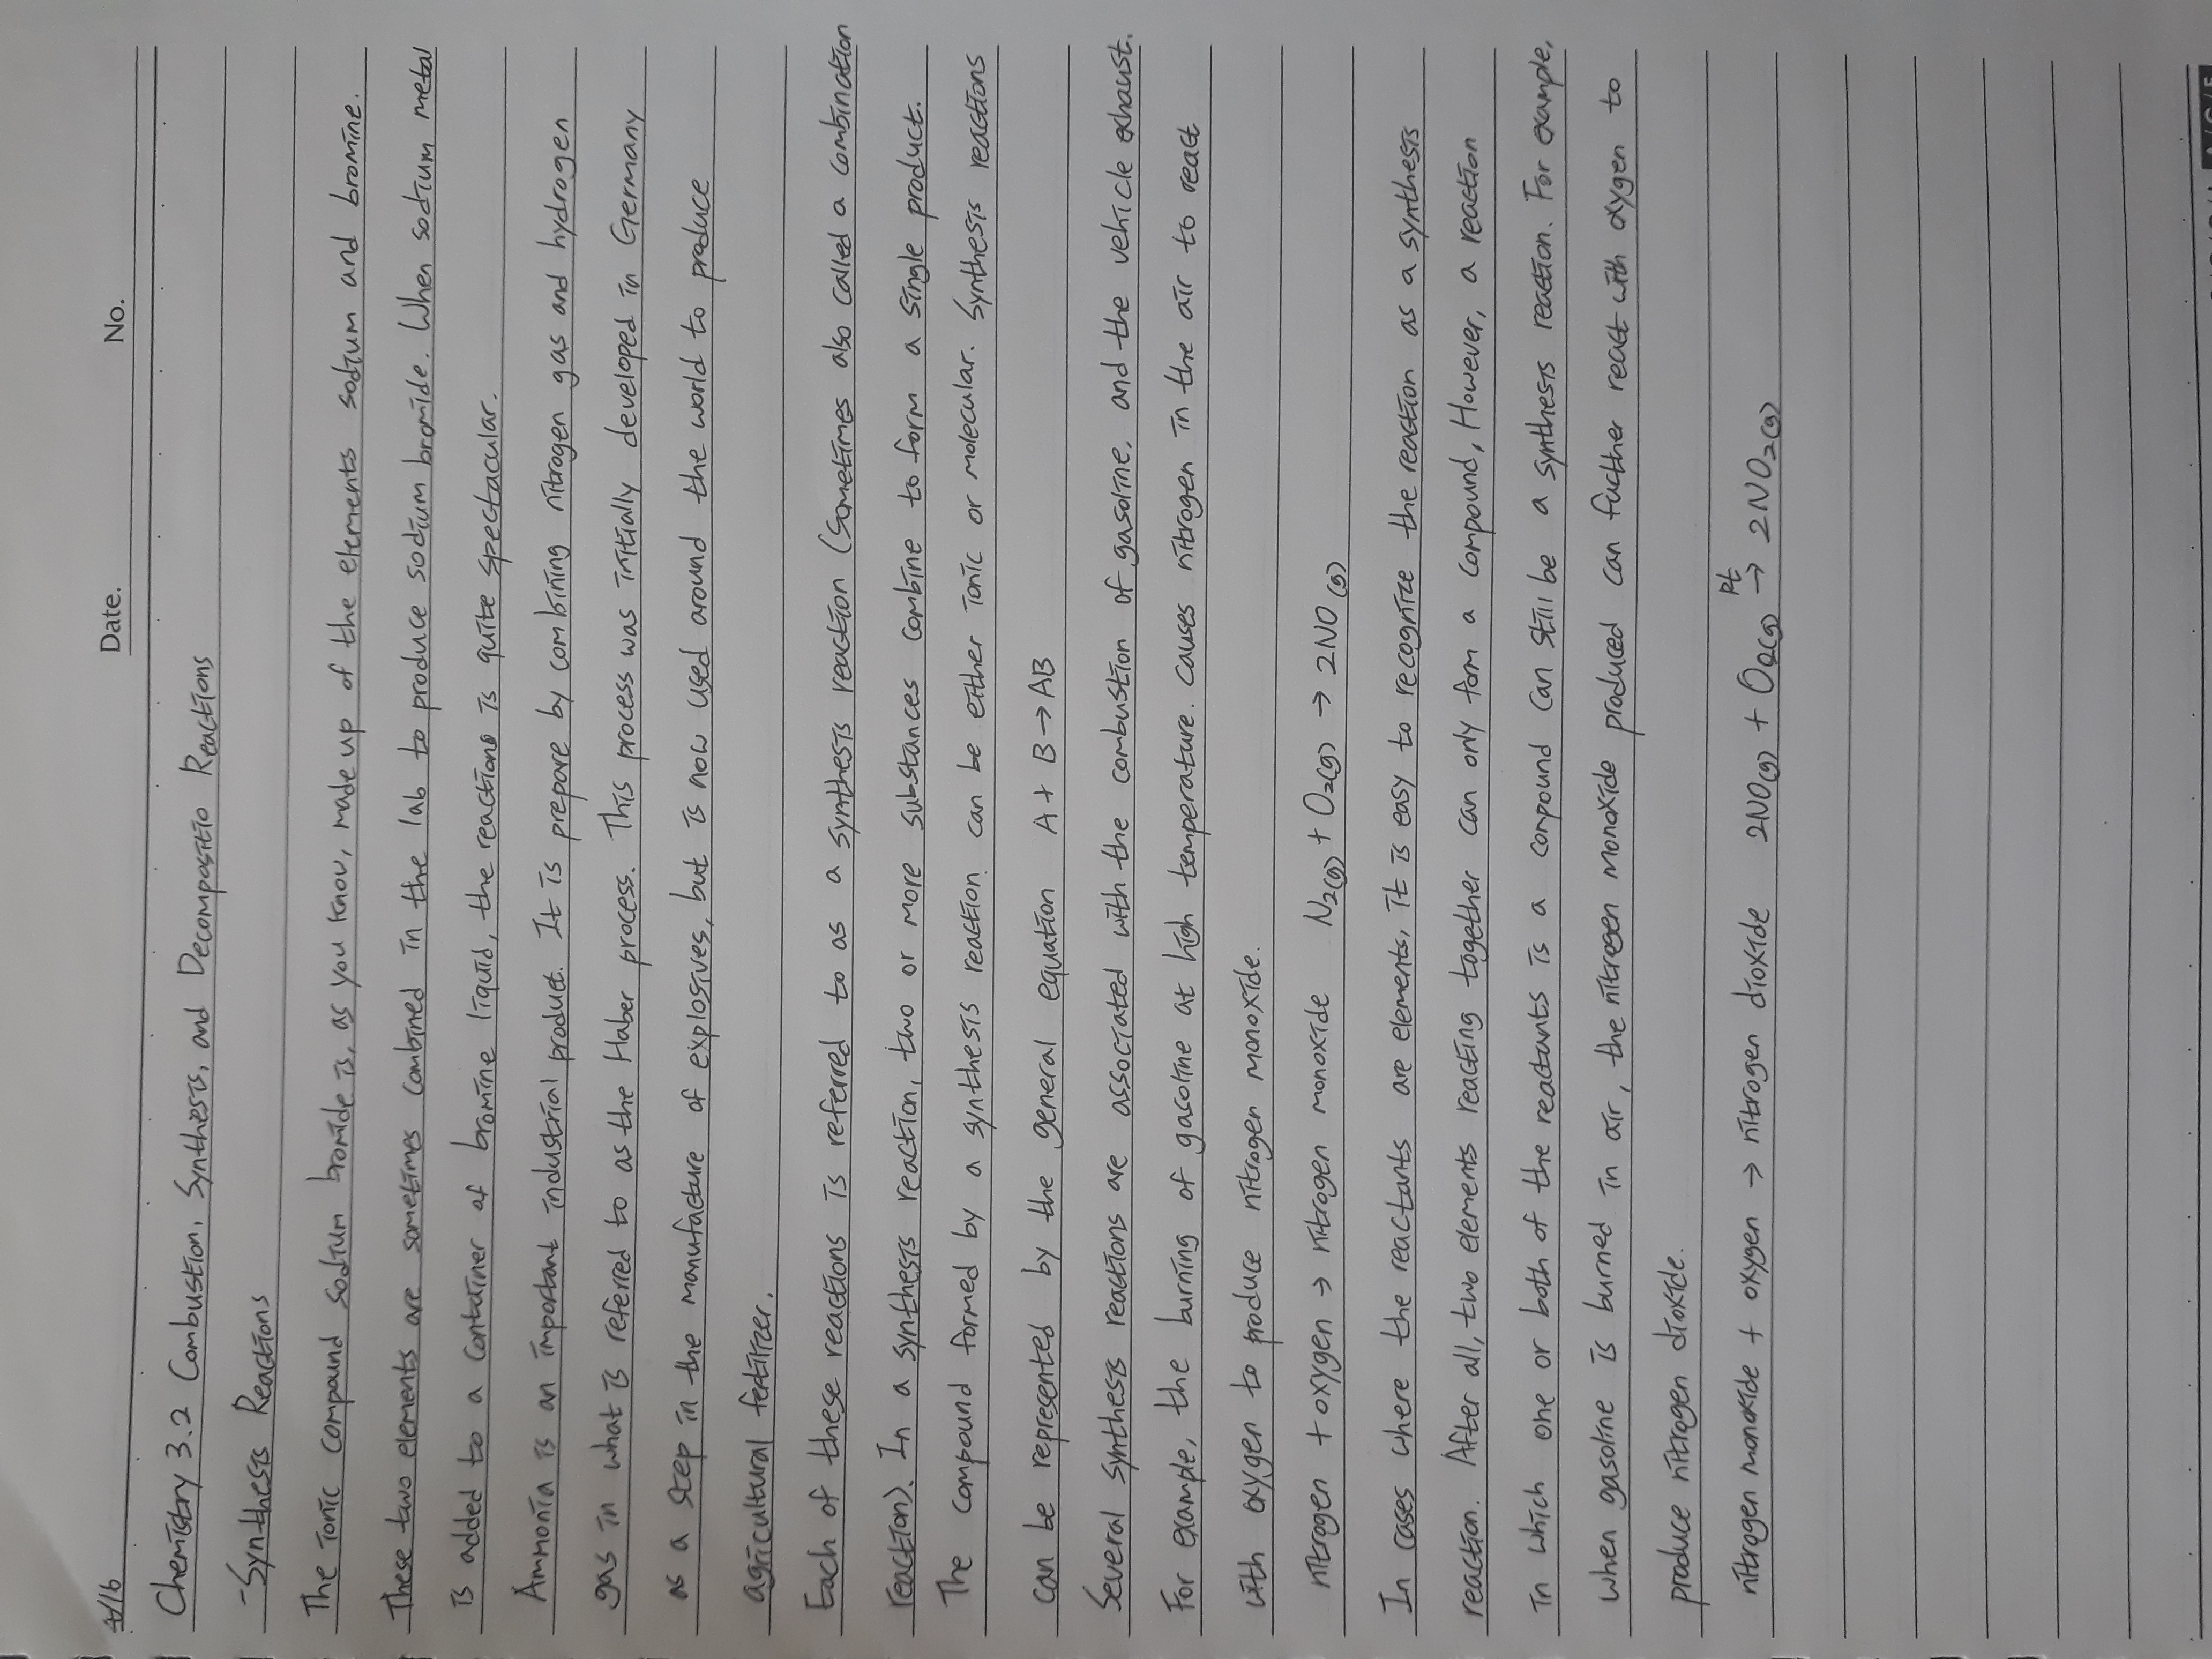 4/16
Date. No.
Chemistry 3.2 Combustion, Synthesis, and Decompositio Reactions
-Synthesis Reactions
The ionic compound sodium bromide is, as you know, made up of the elements sodium and bromine.
These two elements are sometimes combined in the lab to produce sodium bromide. When sodium metal
is added to a container of bromine liquid, the reactions is quite spectacular.
Ammonia is an important industrial product. It is prepare by combining nitrogen gas and hydrogen
gas in what is referred to as the Haber process. This process was initially developed in Germany
as a step in the manufacture of explosives, but is now used around the world to produce
agricultural fertilizer.
Each of these reactions is referred to as a synthesis reaction (Sometimes also called a combination
reaction). In a synthesis reaction, two or more substances combine to form a single product.
The compound formed by a synthesis reaction can be either ionic or molecular. Synthesis reactions
can be represented by the general equation A + B → AB
Several synthesis reactions are associated with the combustion of gasoline, and the vehicle exhaust.
For example, the burning of gasoline at high temperature. causes nitrogen in the air to react
with oxygen to produce nitrogen monoxide.
nitrogen + oxygen → nitrogen monoxide N2(g) + O2(g) → 2NO(g)
In cases where the reactants are elements, It is easy to recognize the reaction as a synthesis
reaction. After all, two elements reacting together can only form a compound, However, a reaction
in which one or both of the reactants is a compound can still be a synthesis reaction. For example,
when gasoline is burned in air, the nitrogen monoxide produced can further react with oxygen to
produce nitrogen dioxide.
nitrogen monoxide + oxygen → nitrogen dioxide 2NO(g) + O2(g) Pt→ 2NO2(g)